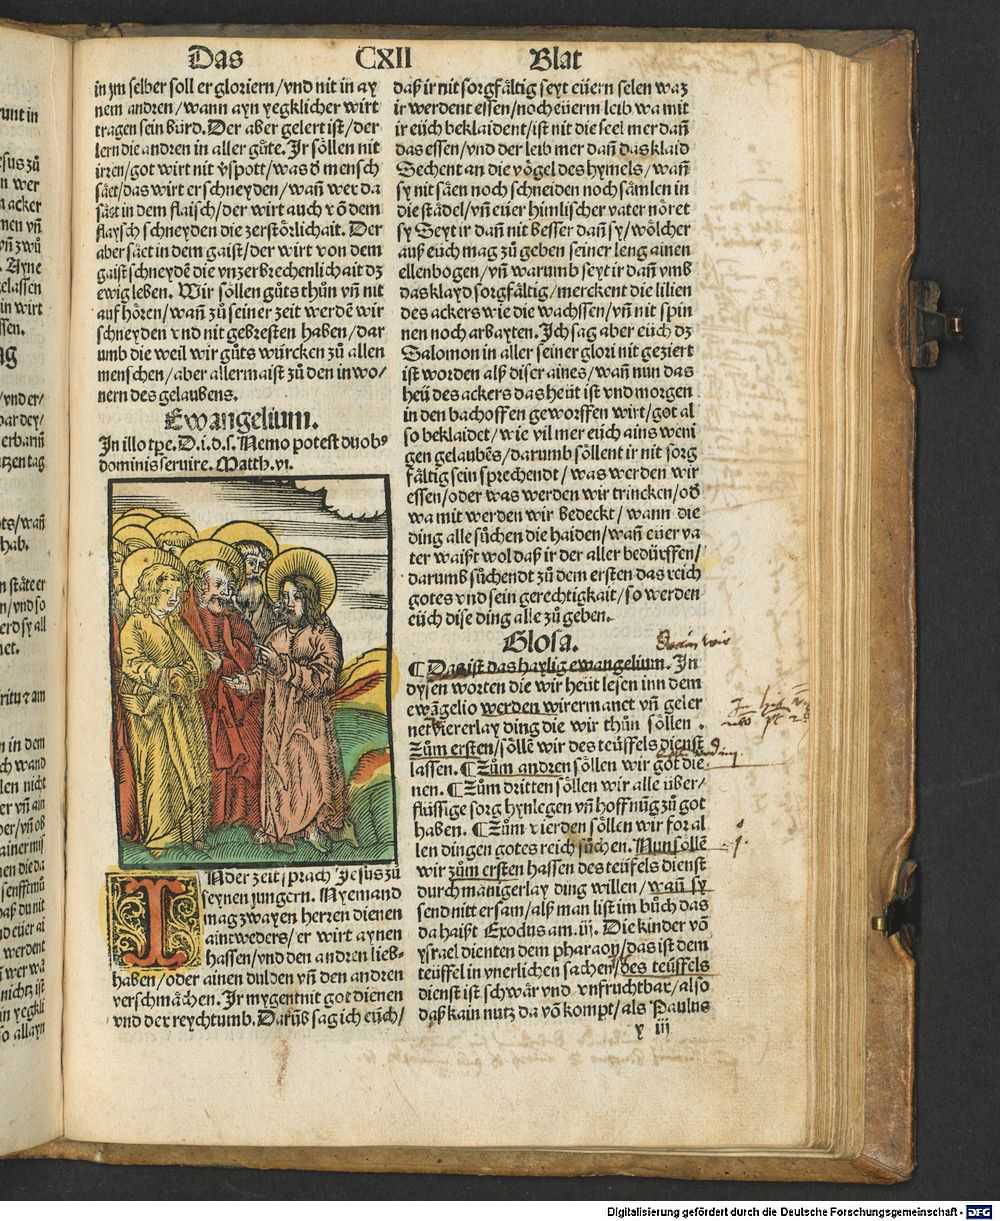 Das CXII Blat
in jm selber soll er gloriern/vnd nit in ay
nem andren/wann ayn yegklicher wirt
tragen sein bürd. Der aber gelert ist/der
lern die andren in aller gůte. Ir söllen nit
irren/got wirt nit v̈spott/was d mensch
säet/das wirt er schneyden/wañ wer da
säet in dem flaisch/der wirt auch võ dem
flaysch schneyden die zerstörlichait. Der
aber säet in dem gaist/der wirt von dem
gaist schneydẽ die vnzerbrechenlichait dz
ewig leben. Wir söllen gůts thůn vñ nit
auf hören/wañ zů seiner zeit werdẽ wir
schneyden vnd nit gebresten haben/dar
umb die weil wir gůts würcken zů allen
menschen/aber allermaist zů den inwo/
nern des gelaubens.
Ewangelium.
In illo tp̃e. D.i.d.s. Nemo potest duobꝰ
dominis seruire. Matth. vi.
IN der zeit sprach Jesus zů
seynen jungern. Nyemand
mag zwayen herren dienen
aintweders/er wirt aynen
hassen/vnd den andren lieb-
haben/oder ainen dulden vñ den andren
verschmächen. Ir mygent nit got dienen
vnd der reychtumb. Darũb sag ich eüch/
daß ir nit sorgfältig seyt eüern selen waz
ir werdent essen/noch eüerm leib wa mit
ir eüch beklaident/ist nit die seel mer dañ
das essen/vnd der leib mer dañ das klaid
Sechent an die vögel des hymels/wañ
sy nit säen noch schneiden noch sämlen in
die städel/vñ eüer himlischer vater nöret
sy Seyt ir dañ nit besser dañ sy/wölcher
auß eüch mag zů geben seiner leng ainen
ellenbogen/vñ warumb seyt ir dañ vmb
das klayd sorgfältig/merckent die lilien
des ackers wie die wachssen/vñ nit spin
nen noch arbayten. Ich sag aber eüch dz
Salomon in aller seiner glori nit geziert
ist worden alß diser aines/wañ nun das
heü des ackers das heüt ist vnd morgen
in den bachoffen geworffen wirt/got al
so beklaidet/wie vil mer eüch ains weni
gen gelaubẽs/darumb söllent ir nit sorg
fältig sein sprechendt/was werden wir
essen/oder was werden wir trincken/od
wa mit werden wir bedeckt/wann die
ding alle sůchen die haiden/wañ eüer va
ter waißt wol daß ir der aller bedürffen/
darumb sůchendt zů dem ersten das reich
gotes vnd sein gerechtigkait/so werden
eüch dise ding alle zů geben.
Glosa.
¶ Das ist das haylig ewangelium. In
dysen worten die wir heüt lesen inn dem
ewãgelio werden wir ermanet vñ geler
net viererlay ding die wir thůn söllen.
Zům ersten/söllẽ wir des teüffels dienst
lassen. ¶ Zům andren söllen wir got die-
nen. ¶ Zům dritten söllen wir alle über/
flüssige sorg hynlegen vñ hoffnũg zů got
haben. ¶ Zům vierden söllen wir for al
len dingen gotes reich sůchen. Nun söllẽ
wir zům ersten hassen des teüfels dienst
durch manigerlay ding willen/wañ sy
send nitt ersam/alß man list im bůch das
da haißt Exodus am .iij. Die kinder võ
ysrael dienten dem pharaon/das ist dem
teüffel in vnerlichen sachen/des teüffels
dienst ist schwär vnd vnfruchtbar/also
daß kain nutz da võ kompt/als Paulus
y iij
Digitalisierung gefördert durch die Deutsche Forschungsgemeinschaft - DFG